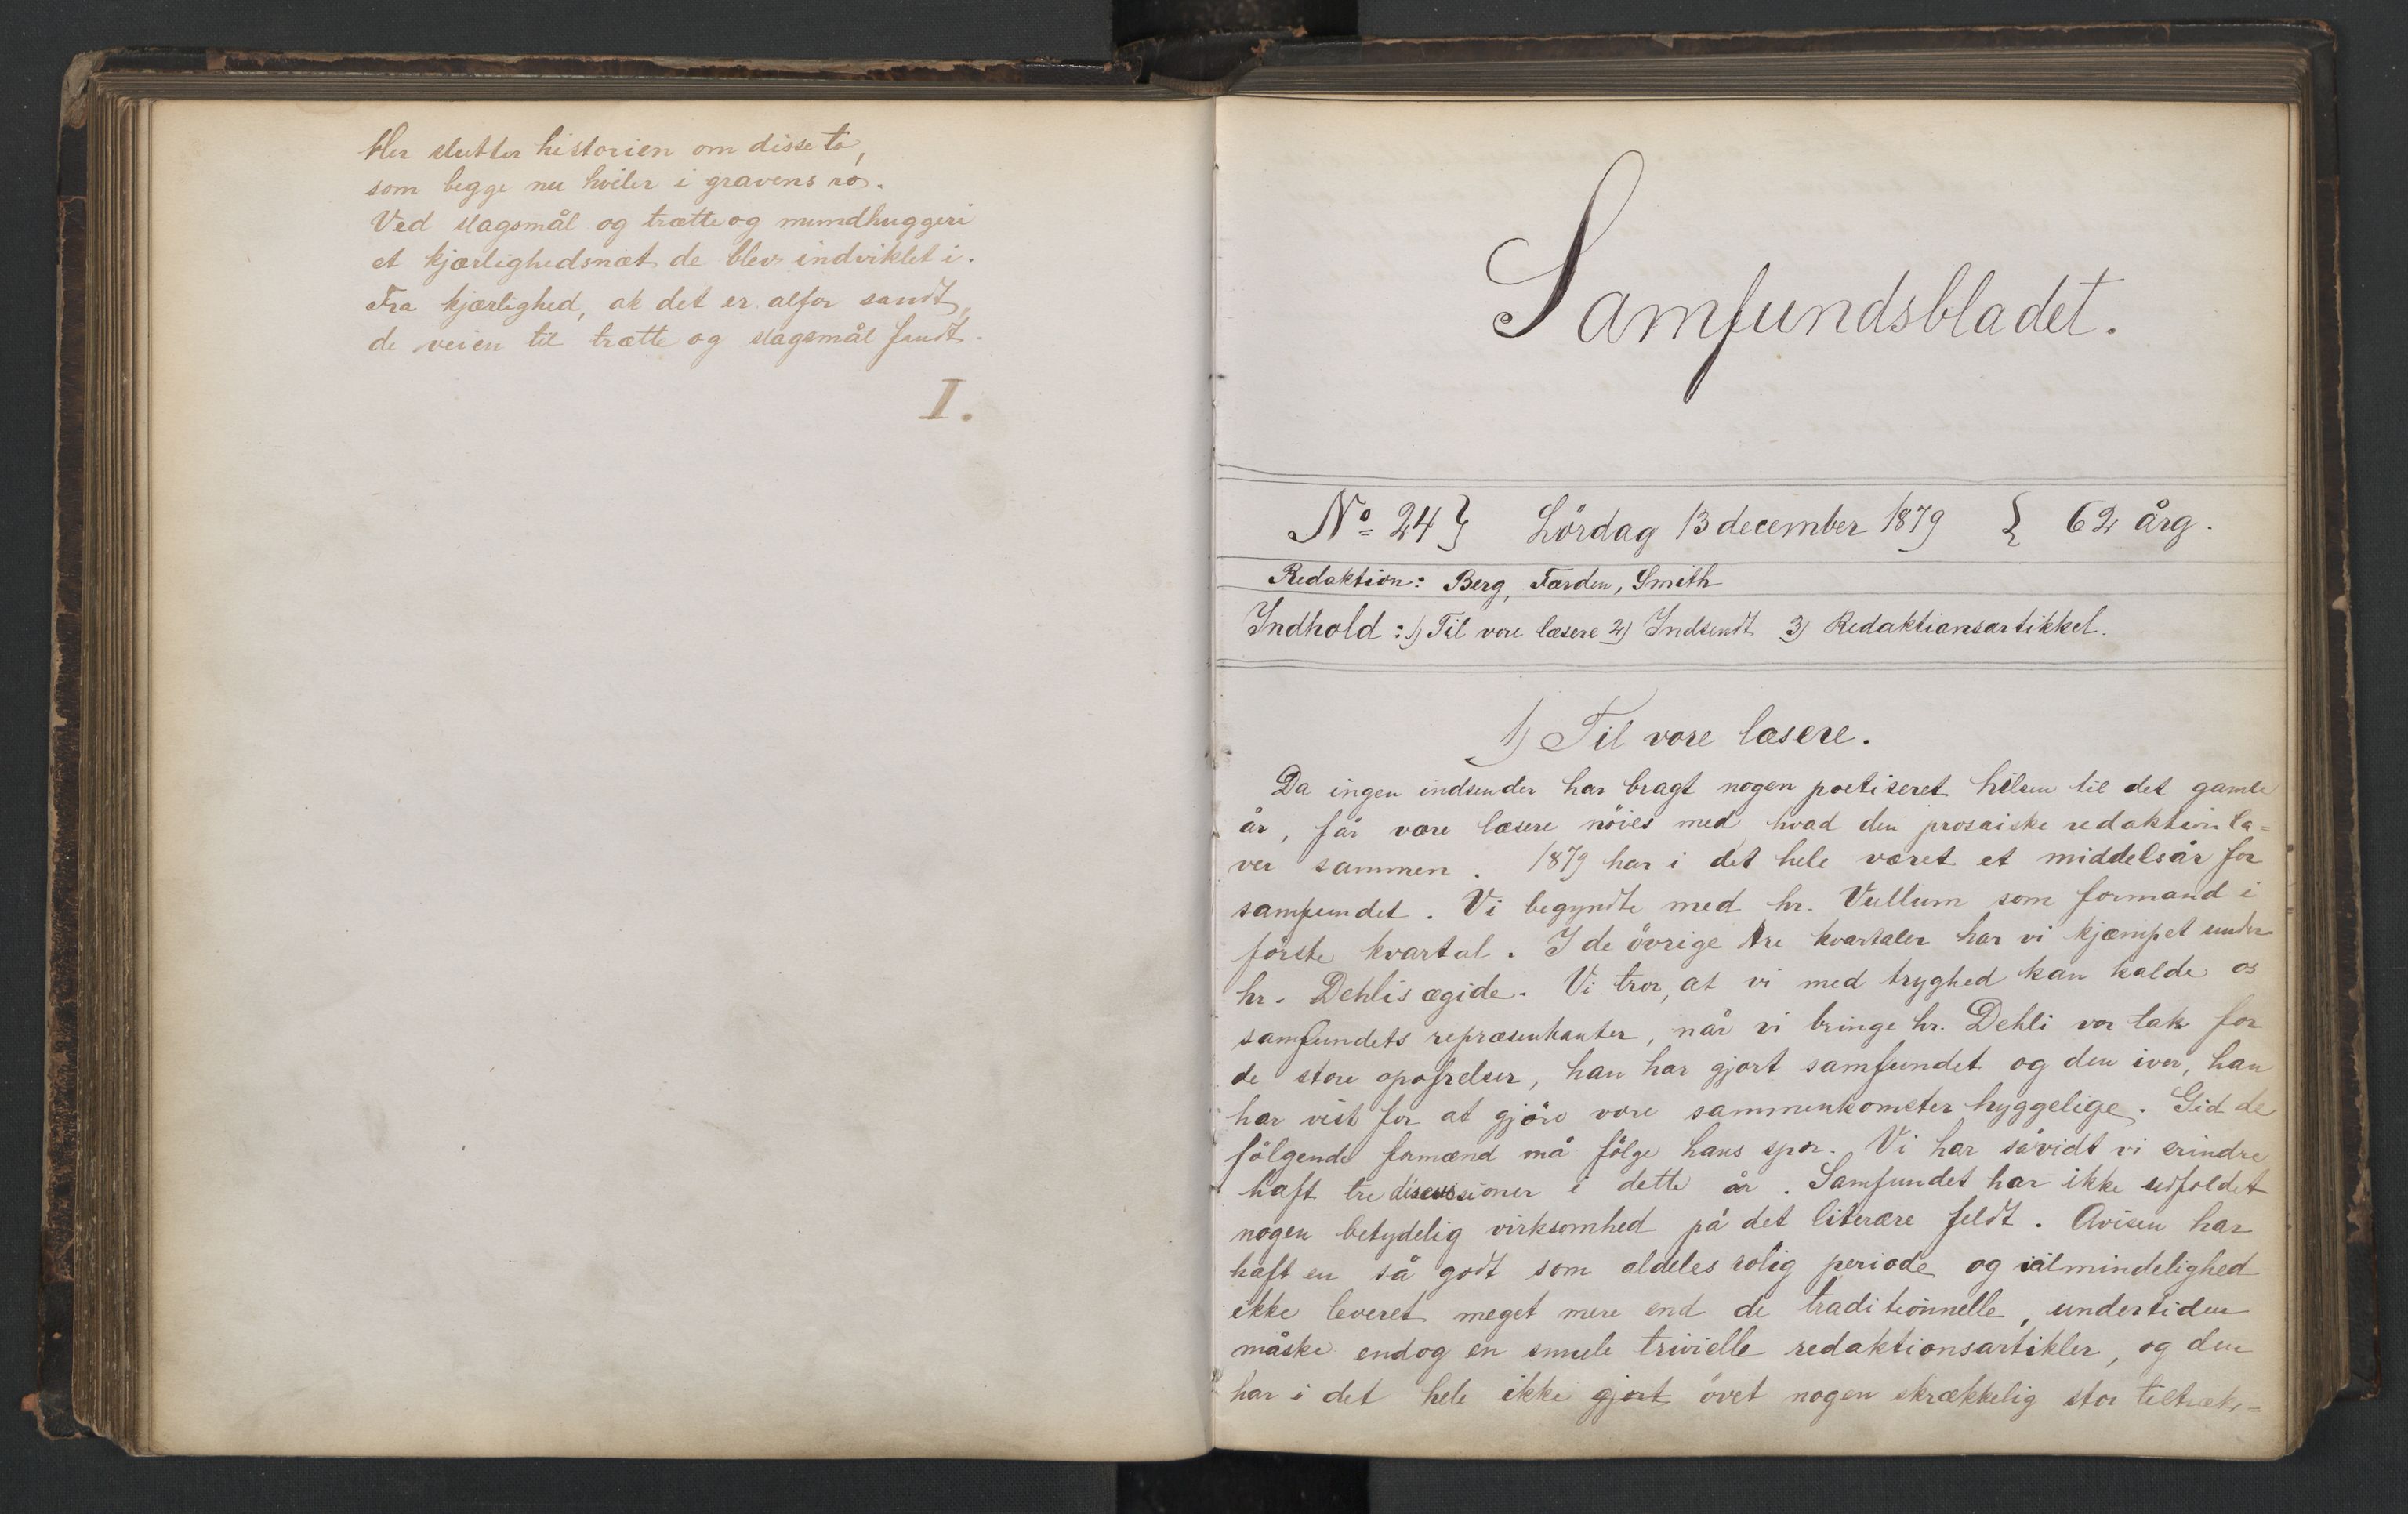 Her slutter historien om disse to,
som begge nu hviler i gravens ro.
Ved slagsmål og trætte og mundhuggeri
et kjærlighedsnæt de blev indviklet i.
Fra kjærlighed, ak det er altfor sandt,
de veien til trætte og slagsmål fandt.
I.
Samfundsbladet.
No 24} Lördag 13 december 1879 { 62 årg.
Redaktion: Berg, Færden, Smith
Indhold: 1) Til vore læsere 2) Indsendt 3) Redaktionsartikkel.
1) Til vore læsere.
Da ingen indsender har bragt nogen poetiseret hilsen til det gamle
år, får vore læsere nöies med hvad den prosaiske redaktion la=
ver sammen. 1879 har i det hele været et middelsår for
samfundet. Vi begyndte med hr. Vullum som formand i
förste kvartal. I de övrige tre kvartaler har vi kjæmpet under
hr. Dehlis ægide. Vi tror, at vi med tryghed kan kalde os
samfundets repræsentanter, når vi bringe hr. Dehli vor tak for
de store opofrelser, han har gjort samfundet og den iver, han
har vist for at gjöre vore sammenkomster hyggelige. Gid de
fölgende formænd må fölge hans spor. Vi har såvidt vi erindre
haft tre discussioner i dette år. Samfundet har ikke udfoldet
nogen betydelig virksomhed på det literære feldt. Avisen har
haft en så godt som aldeles rolig periode og i almindelighed
ikke leveret meget mere end de traditionnelle, undertiden
måske endog en smule trivielle redaktionsartikler, og den
har i det hele ikke gjort övet nogen skrækkelig stor tiltræk=